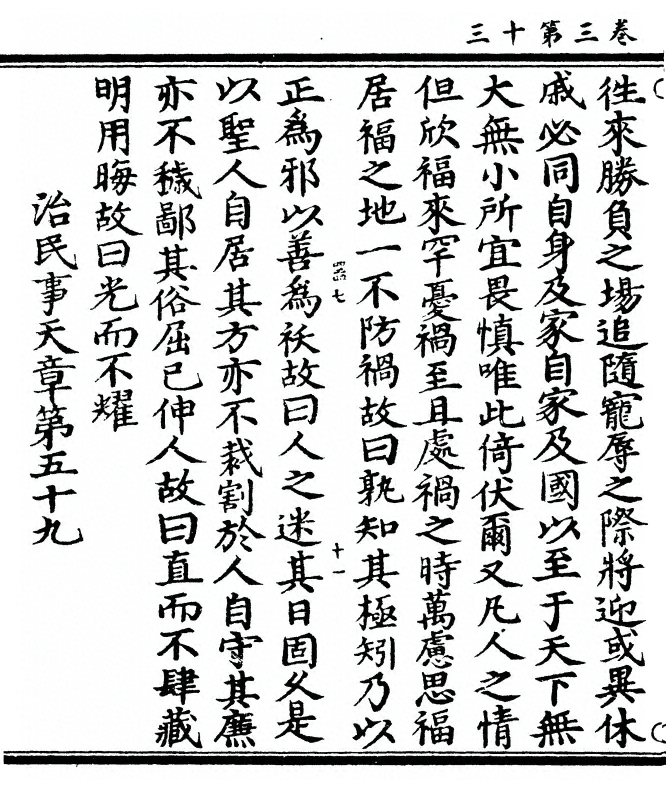 卷三第十三
徃來勝負之場追隨寵辱之際將迎或異休
戚必同自身及家自家及國以至于天下無
大無小所宜畏慎唯此倚伏爾又凡人之情
但欣福來罕憂禍至且處禍之時萬慮思福
居福之地一不防禍故曰孰知其極矧乃以
正為邪以善為祅故曰人之迷其日固久是
以聖人自居其方亦不裁割於人自守其廉
亦不穢鄙其俗屈已伸人故曰直而不肆藏
明用晦故曰光而不耀
治民事天章第五十九
七
十一